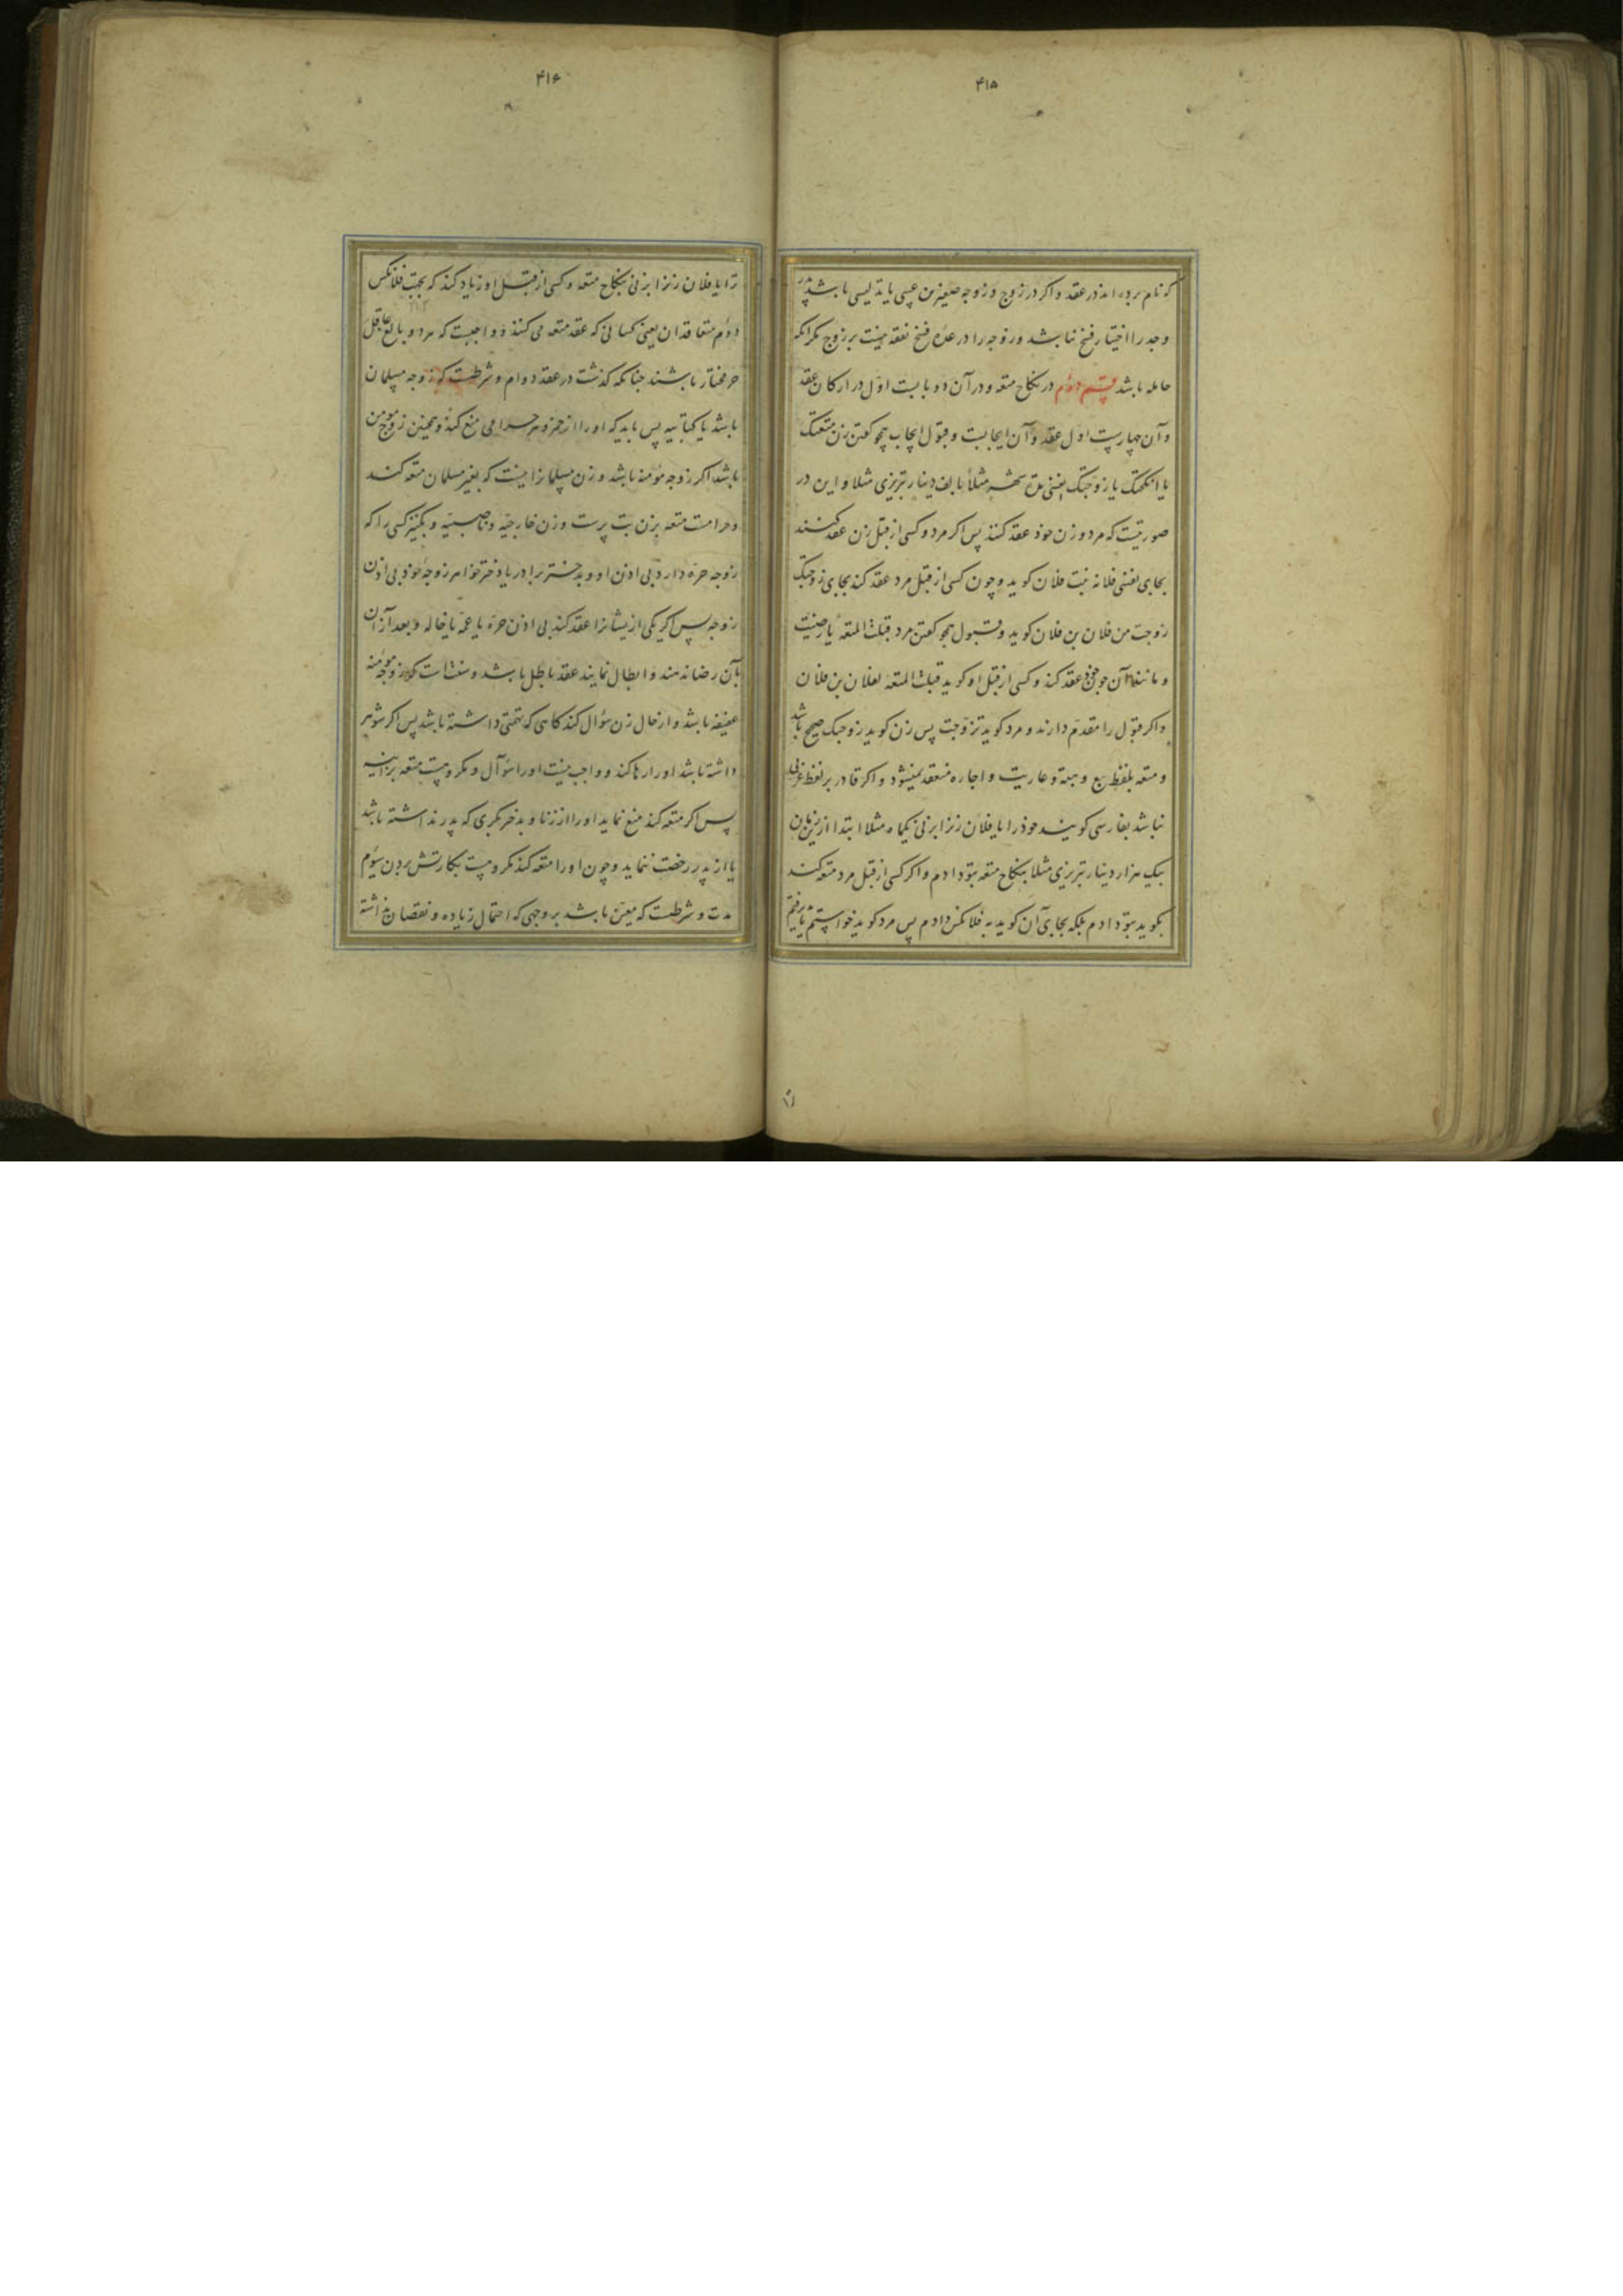 ۴۱۵
که نام برده اند در عقد و اکر در زوج و زوجه صغیرین عیبی یا تدلیسی باشد پدر
و جد را اختیار فسخ نباشد و زوجه را در عده فسخ نفقه نیست بر زوج مکر انکه
حامله باشد قسم دوم در نکاح متعه و در آن دو بابست اول در ارکان عقد
و آن چهارست اول عقد و آن ایجابست و قبول ایجاب همچو کفتن زن متعتک
یا انکحتک یا زوجتک نفسی مدة شهر مثلاً بالف دینار تبریزی مثلا و این در
صورتیست که مرد و زن خود عقد کنند پس اکر مرد و کسی از قبل زن عقد کنند
بجای نفسی فلانه بنت فلان کوید و چون کسی از قبل مرد عقد کند بجای زوجتک
زوجت من فلان بن فلان کوید و قبول همچو کفتن مرد قبلت المتعة یا رضیت
و مانند آن چون خود عقد کند و کسی از قبل او کوید قبلت المتعه لفلان بن فلان
و اکر قبول را مقدم دارند و مرد کوید تزوجت پس زن کوید زوجتک صحیح باشد
و متعه بلفظ بیع و هبة و عاریت و اجاره منعقد نمیشود و اکر قادر بر لفظ عربی
نباشد بفارسی کویند خود را یا فلان زنرا بزنی یکماه مثلا ابتدا ازین زمان
بیک هزار دینار تبریزی مثلا بنکاح متعه بتو دادم و اکر کسی از قبل مرد متعه کند
نکوید بتو دادم بلکه بجای آن کوید به فلانکس دادم پس مرد کوید خواستم یا پذیرفتم
۴۱۶
ترا یا فلان زنرا بزنی بنکاح متعه و کسی از قبل او زیاد کند که بجهت فلانکس
دوم متعاقدان یعنی کسانی که عقد متعه می کنند و واجبست که مرد و بالغ عاقل
حر مختار باشند چنانکه کذشت در عقد دوام و شرطست که زوجه مسلمان
باشد یا کتابیه پس باید که او را از خمر و هر حرامی منع کند و همچنین زوج مومن
باشد اکر زوجه مؤمنه باشد و زن مسلمانرا نیست که بغیر مسلمان متعه کند
و حرامست متعه بزن بت پرست و زن خارجیه و ناصبیه و بکنیز کسی را که
زوجه حره دارد بی اذن او و بدختر برادر یا دختر خواهر زوجهٔ خود بی اذن
زوجه پس اکر یکی از یشانرا عقد کند بی اذن حره یا عمه یا خاله و بعد از آن
بآن رضا ندهند و ابطال نمایند عقد باطل باشد و سنت است که زوجه مؤمنه
عفیفه باشد و از حال زن سؤال کند کاهی که تهمتی داشته باشد پس اکر شوهر
داشته باشد او را رها کند و واجب نیست او را سؤال و مکروهست متعه بزانیه
پس اکر متعه کند منع نماید او را از زنا و بدختر بکری که پدر نداشته باشد
یا از پدر رخصت ننماید و چون او را متعه کند مکروهست بکارتش بردن سیوم
مدت و شرطست که معین باشد بر وجهی که احتمال زیاده و نقصان نداشته